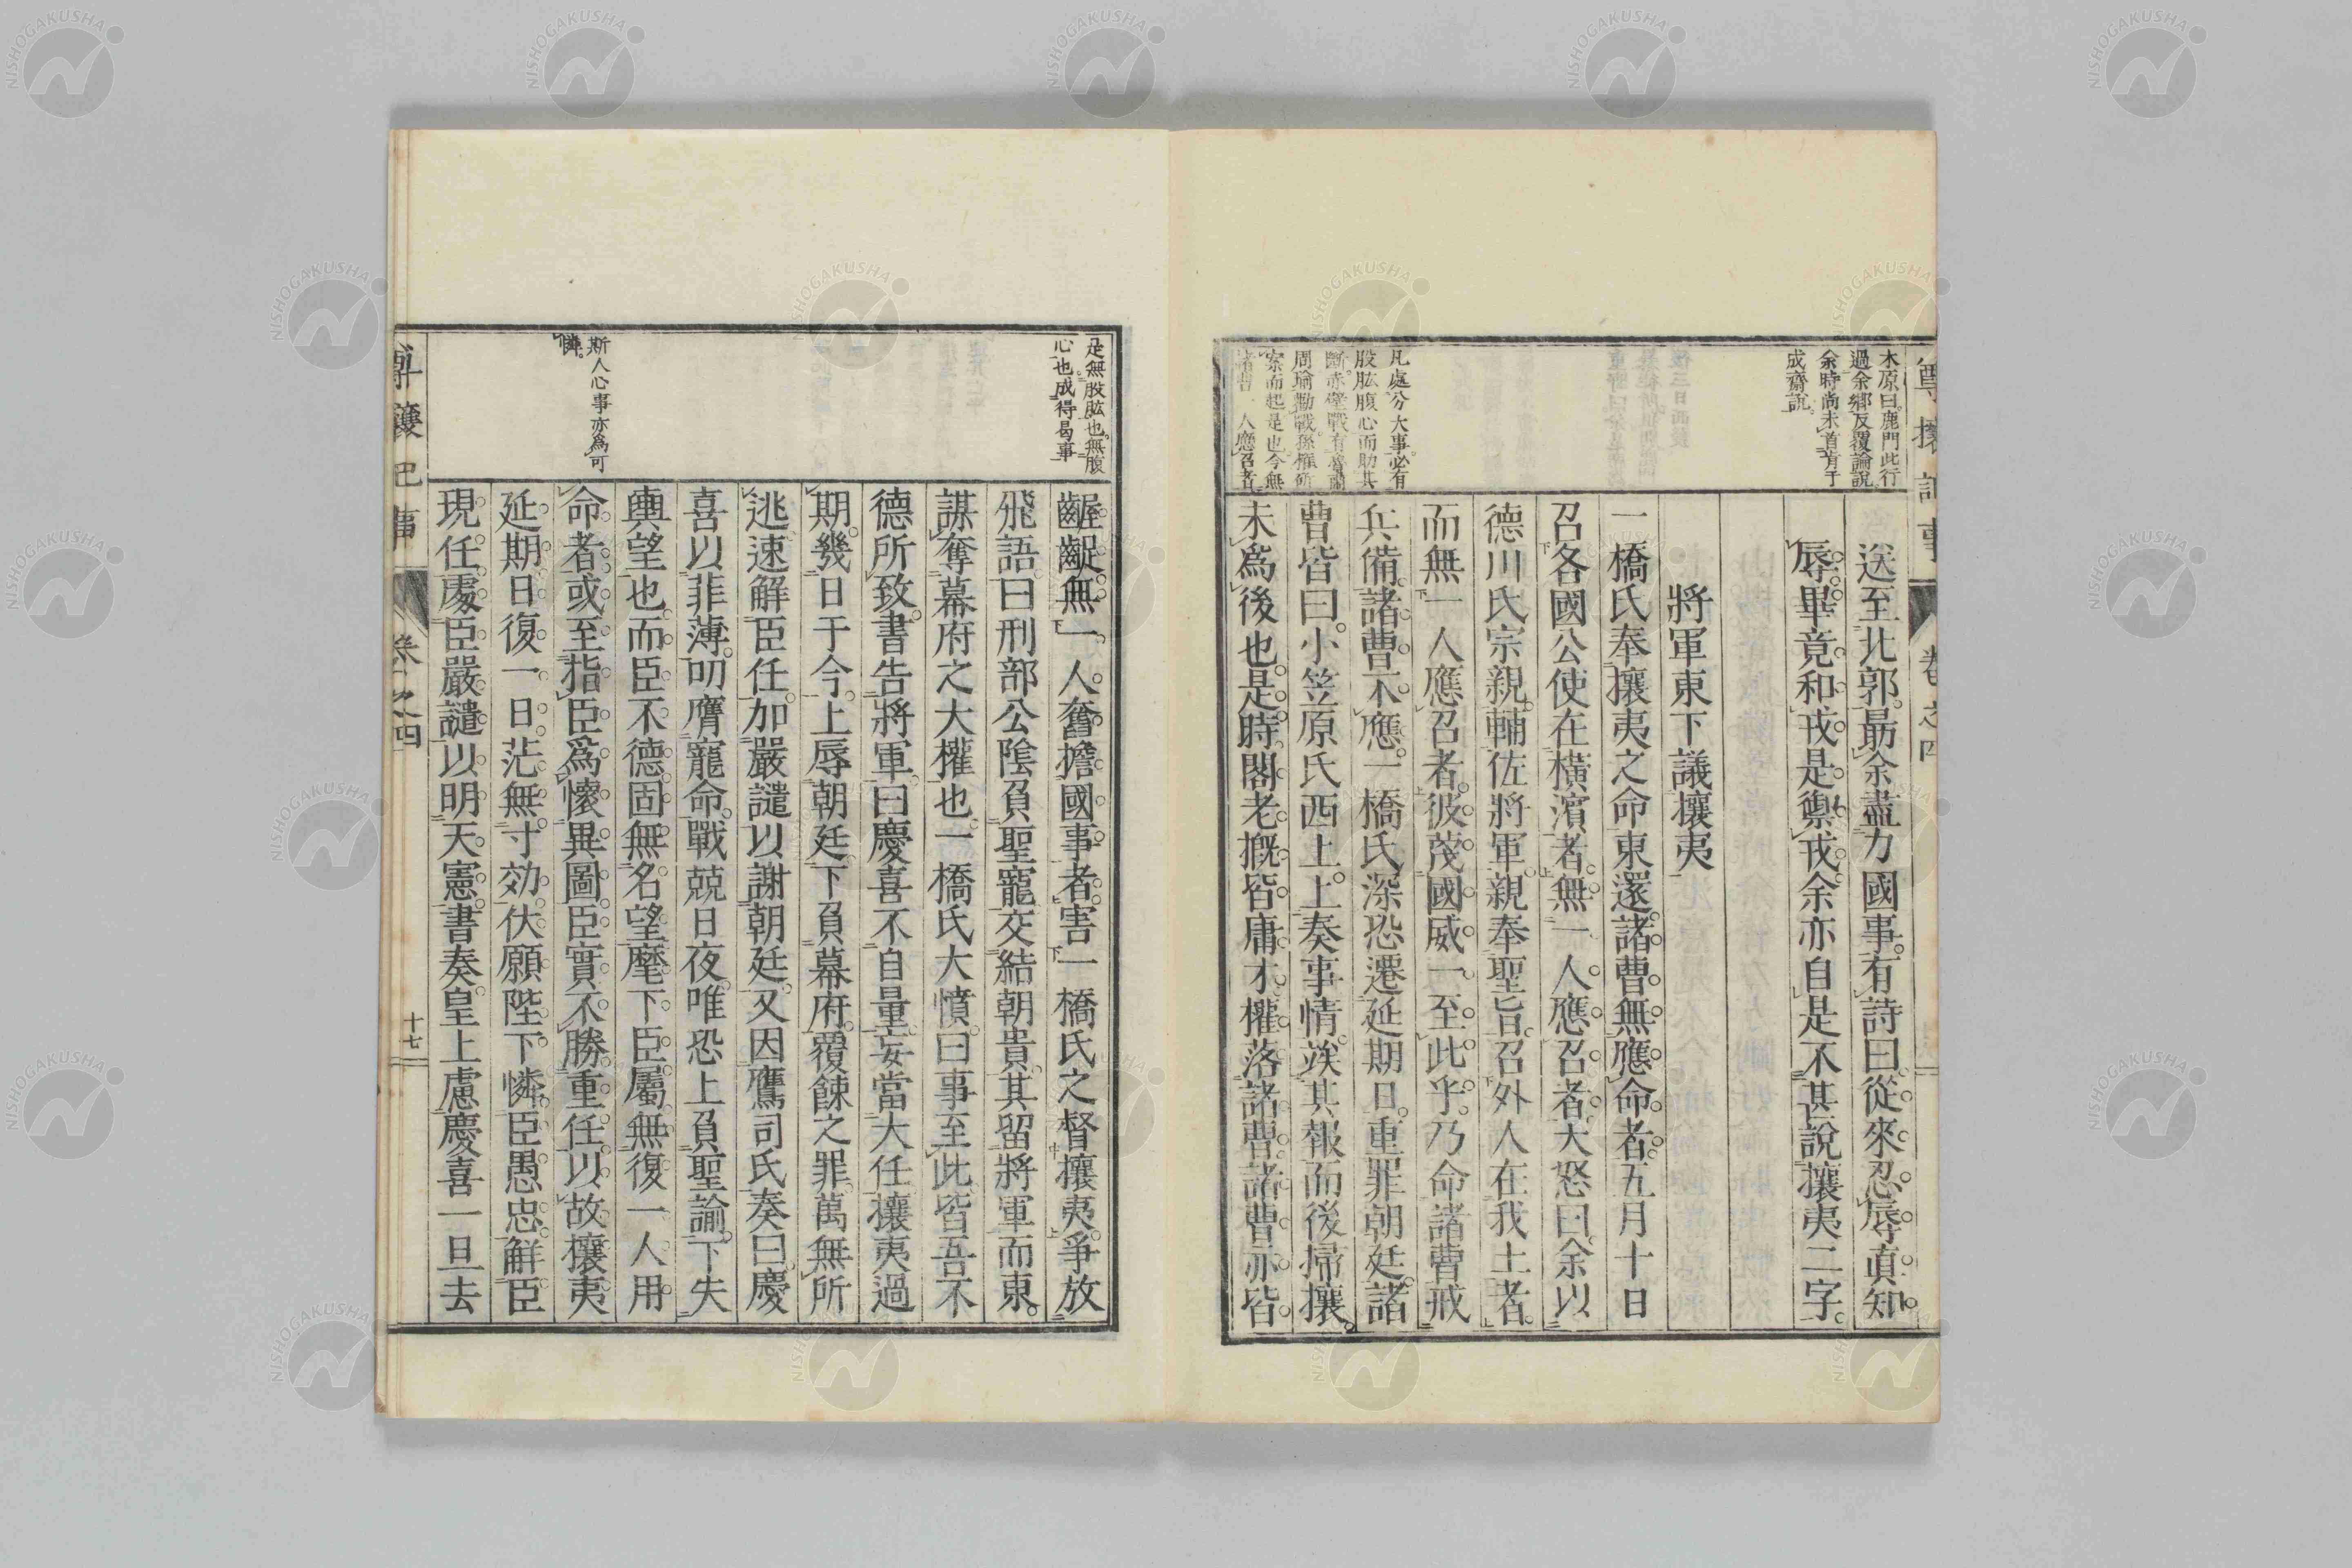 尊攘記事
卷之四
木原曰。鹿門此行
過余鄉。反覆論說
余時尚未首肯于
成齋說。
送至北郭。最余盡力國事。有詩曰。從來忍辱真知
辱。畢竟和戎是禦戎。余亦自是不甚說攘夷二字。
將軍東下議攘夷
凡處分大事。必有
股肱腹心而助其
斷。赤壁戰有魯肅
周瑜勸戰。孫權斫
案而起是也。今無
諸曹一人應召者。
一橋氏奉攘夷之命東還。諸曹無應命者。五月十日
召各國公使在橫濱者。無一人應召者。大怒曰。余以
德川氏宗親。輔佐將軍。親奉聖旨。召外人在我土者。
而無一人應召者。彼蔑國威。一至此乎。乃命諸曹戒
兵備。諸曹不應。一橋氏深恐遷延期日。重罪朝廷。諸
曹皆曰。小笠原氏西上。上奏事情。竢其報而後掃攘。
未為後也。是時閣老概皆庸才。權落諸曹。諸曹亦皆
是無股肱也。無腹
心也。成得曷事
齷齪。無一人奮擔國事者。害一橋氏之督攘夷。爭放
飛語曰刑部公陰負聖寵。交結朝貴。其留將軍而東。
謀奪幕府之大權也。一橋氏大憤。曰事至此皆吾不
德所致。書告將軍。曰慶喜不自量。妄當大任。攘夷過
期。幾日于今。上辱朝廷。下負幕府。覆餗之罪。萬無所
逃。速解臣任。加嚴譴以謝朝廷。又因鷹司氏奏曰。慶
喜以非薄。叨膺寵命。戰兢日夜。唯恐上負聖諭。下失
輿望也。而臣不德固無名望。麾下臣屬。無復一人用
斯人心事亦為可
憐。
命者。或至指臣為懷異圖。臣實不勝重任。以故攘夷
延期。日復一日。茫無寸効。伏願陛下憐臣愚忠。解臣
現任。處臣嚴譴。以明天憲。書奏。皇上慮慶喜一旦去
尊攘記事
卷之四
十七
NISHOGAKUSHA